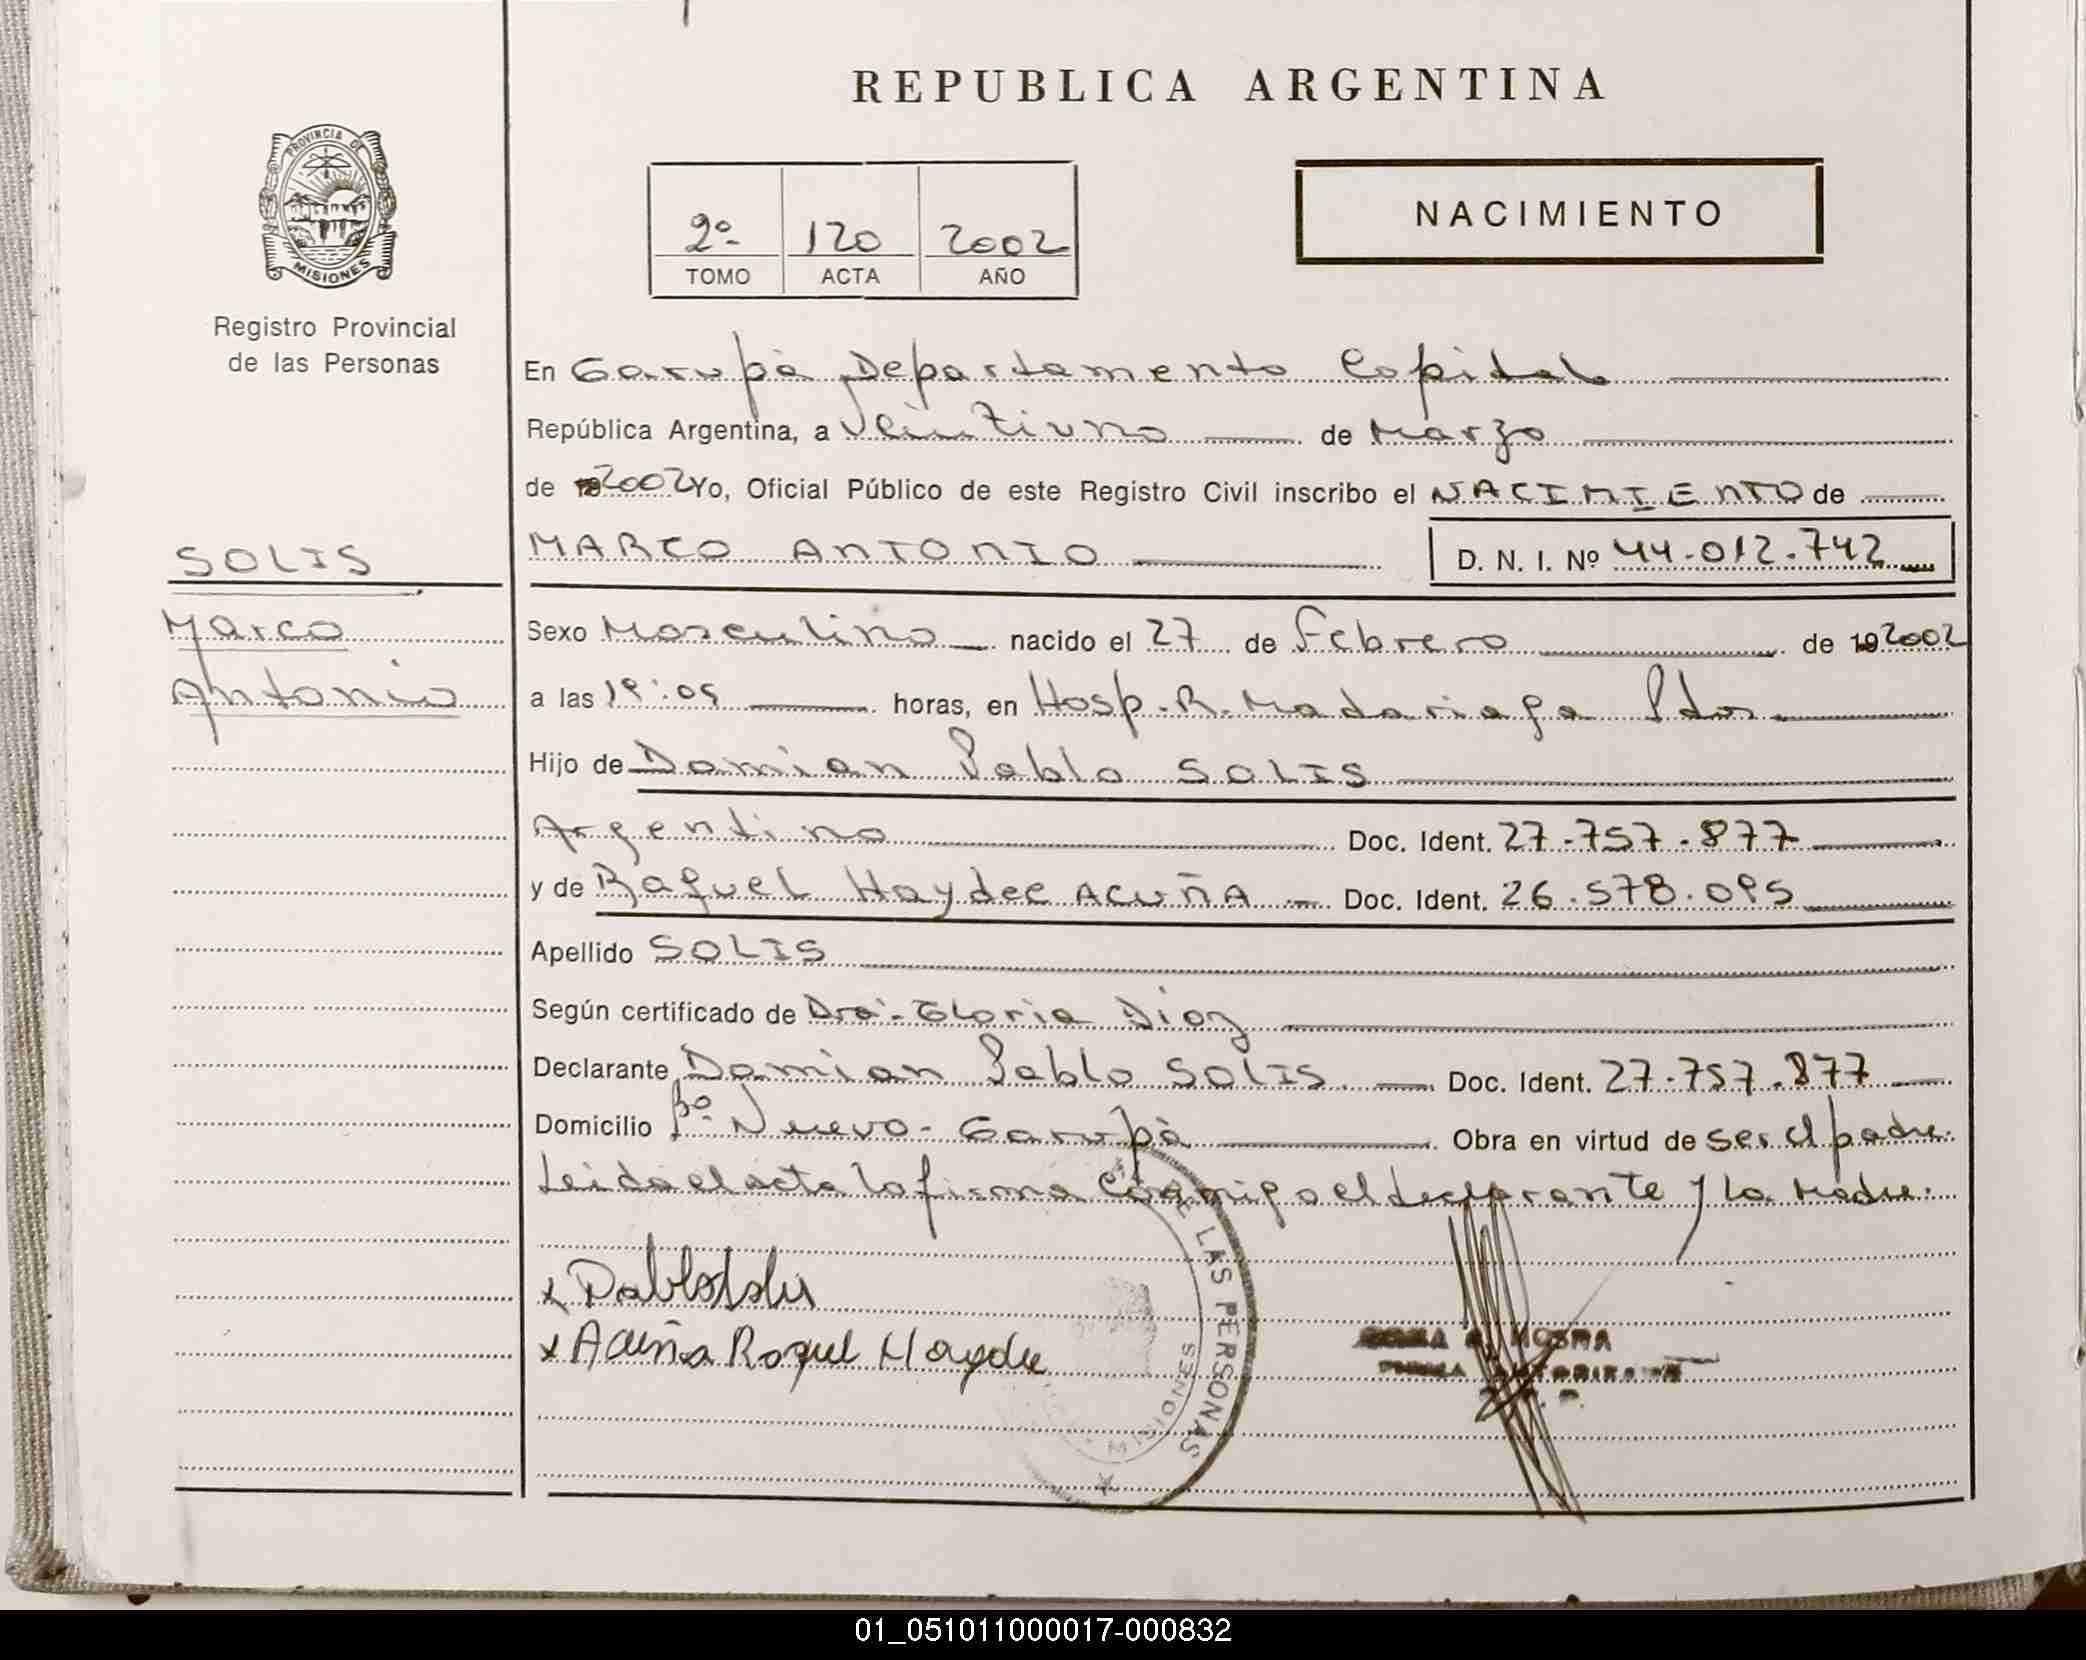 REPUBLICA ARGENTINA
PROVINCIA DE
MISIONES
2º 120 2002
TOMO ACTA AÑO
NACIMIENTO
Registro Provincial
de las Personas
En Garupà Departamento Capital
República Argentina, a Veintiuno de Marzo
de 2002 Yo, Oficial Público de este Registro Civil inscribo el NACIMIENTO de
SOLIS
MARCO ANTONIO D. N. I. Nº 44.012.742
Marco
Antonio
Sexo Masculino nacido el 27 de Febrero de 192002
a las 19:05 horas, en Hosp. R. Madariaga Pdas.
Hijo de Damian Pablo SOLIS
Argentino Doc. Ident. 27.757.877
y de Raquel Haydee ACUÑA Doc. Ident. 26.578.095
Apellido SOLIS
Según certificado de Dra. Gloria Diaz
Declarante Damian Pablo SOLIS. Doc. Ident. 27.757.877
Domicilio Bº Nuevo - Garupà Obra en virtud de ser el padre.
Leida el acta la firma conmigo el declarante y la Madre.
x Pablo Solis
x Acuña Raquel Haydee
DE LAS PERSONAS
MISIONES
01_051011000017-000832